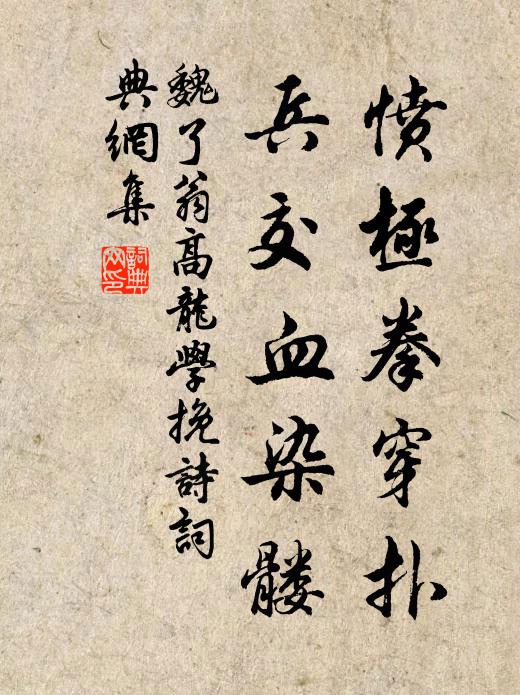 憤極拳穿扑
兵交血染髅
魏了翁高龍學挽詩詞
典網集
詞典
网印